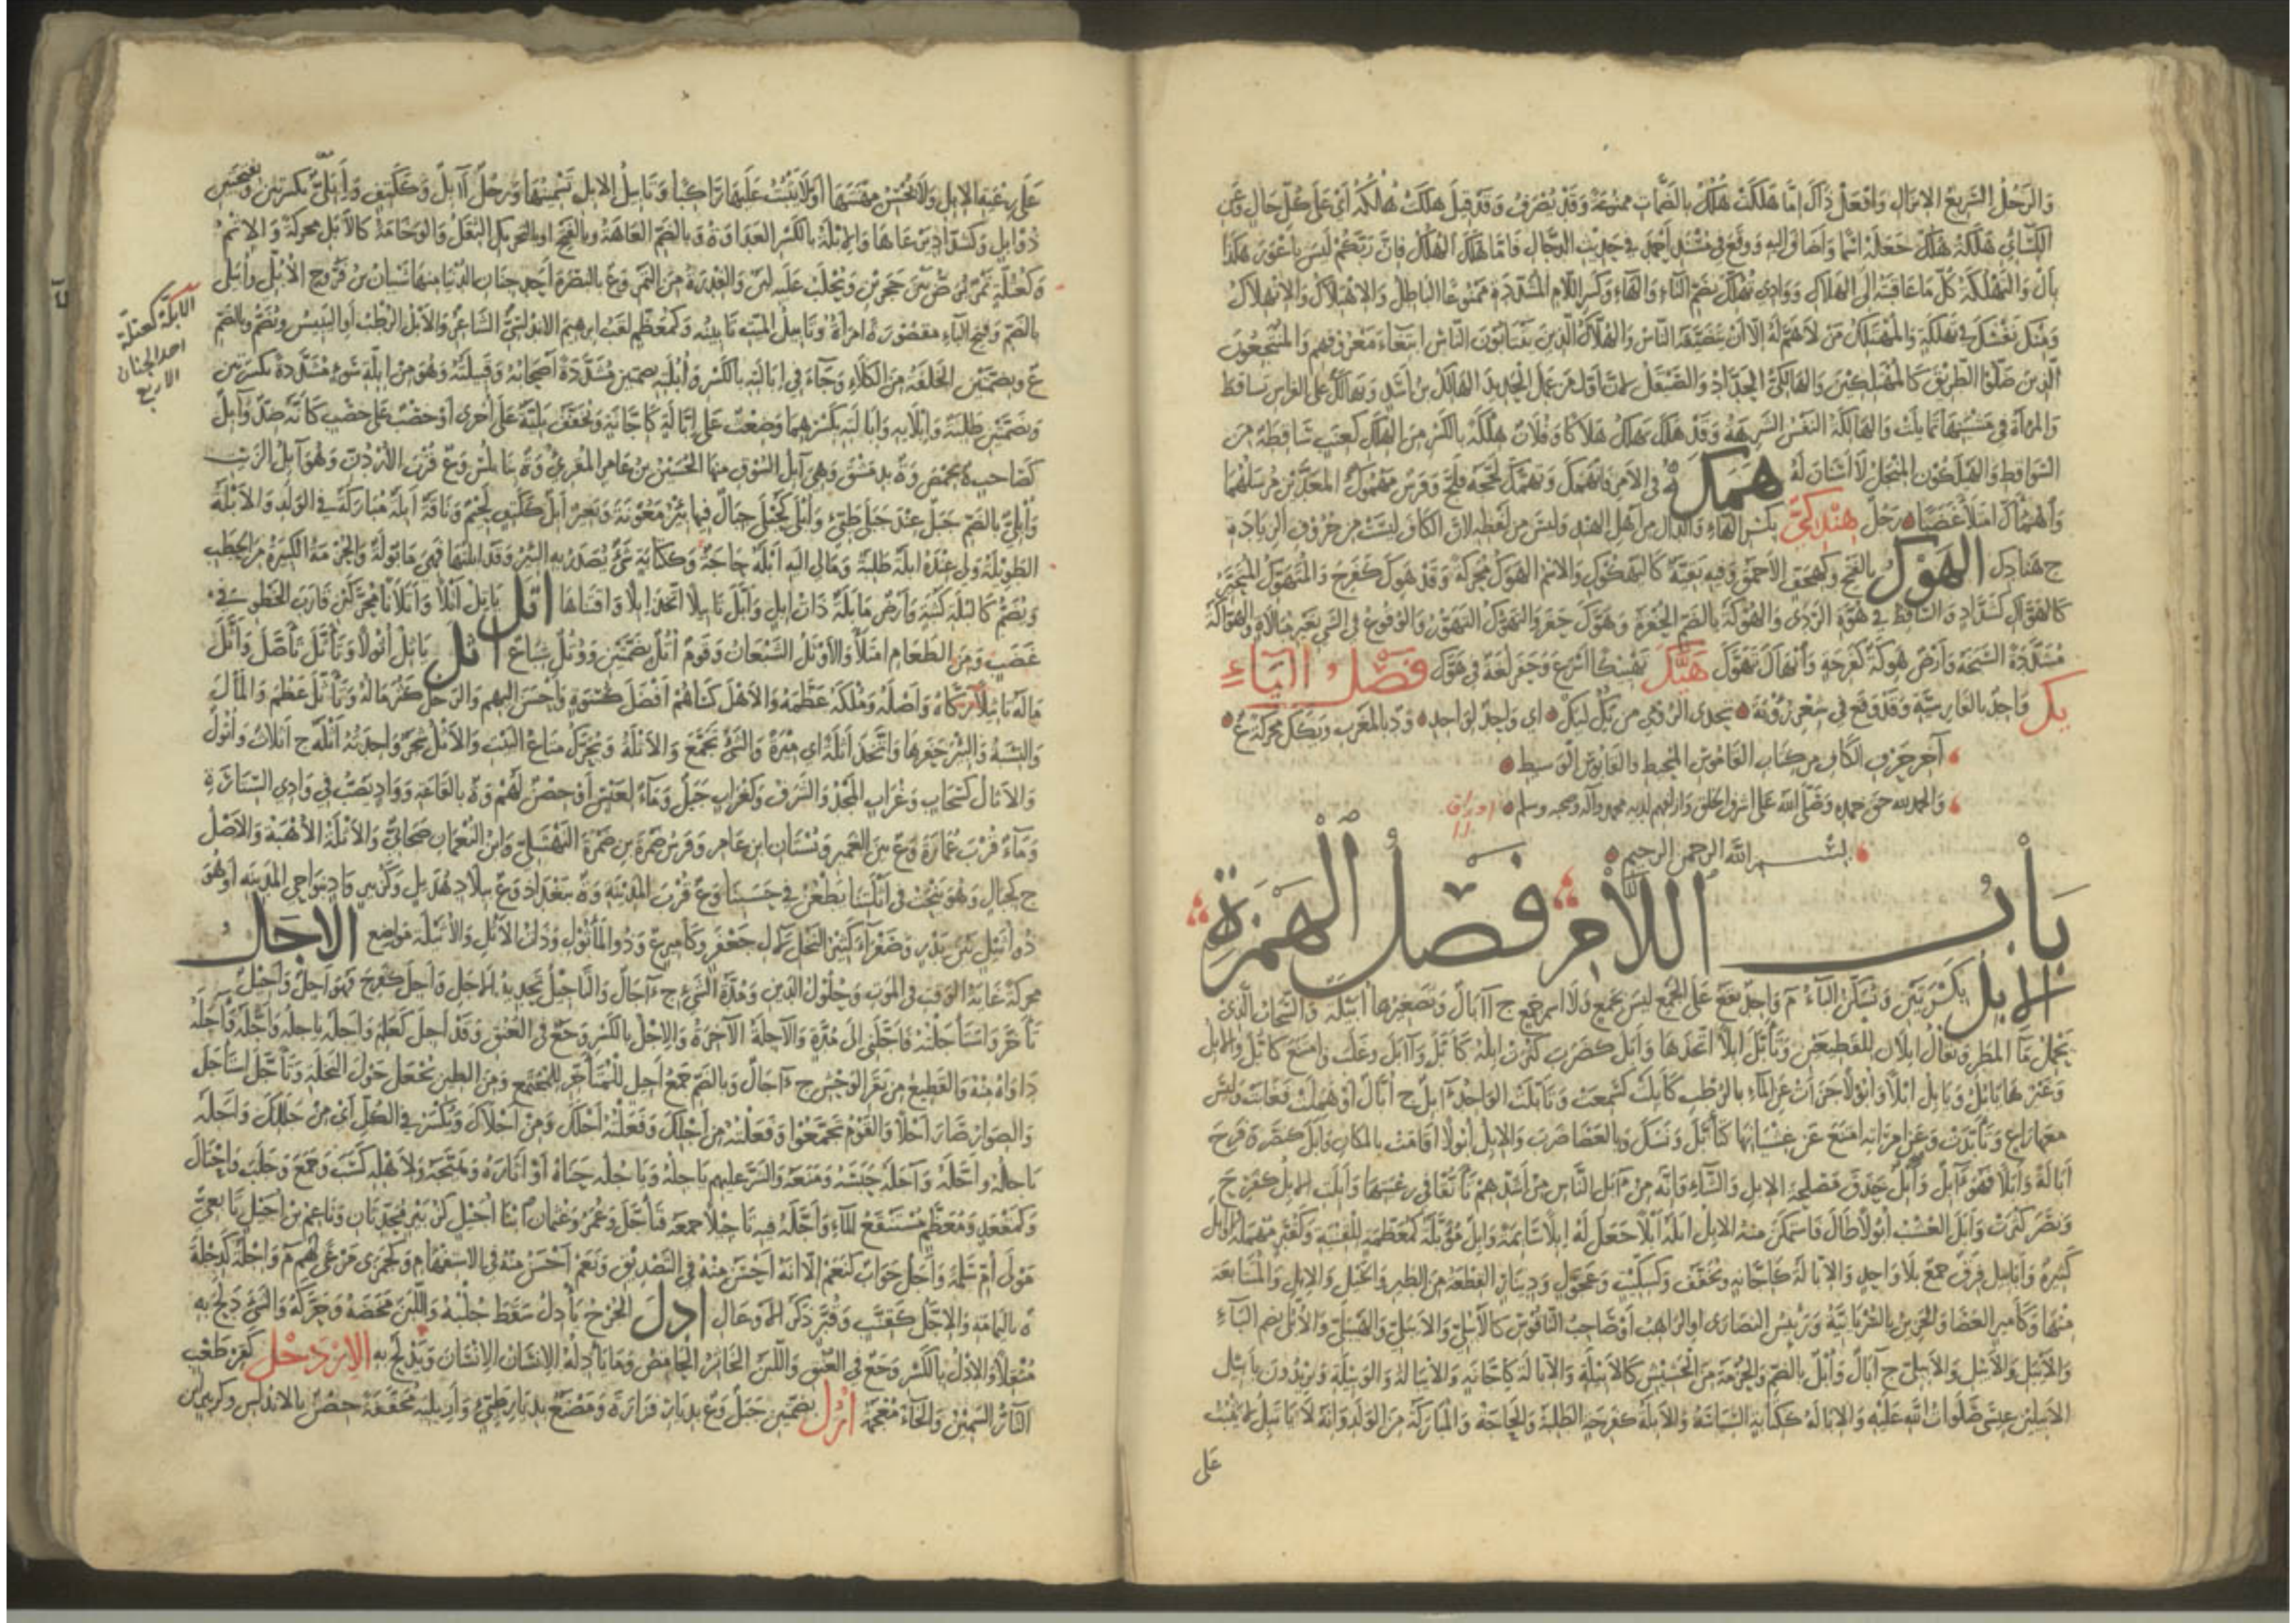 والرجل الشريع الانزال وافعل ذاك اما هلكت هلك بالضمات ممنوعة وقد تصرف وقد قيل هلكت هلكه اى على كل حال وعن
الكسائي هلكة هلك جعله اسما واضاف اليه ووقع في مسند احمد في حديث الدجال فاما هلك الهلك فان ربكم ليس باعور هكذا
بال والتهلكة كل ما عاقبته الى الهلاك ووادي تهلك بضم التاء والهاء وكسر اللام المشددة ممنوعا الباطل والاهتلاك والانهلاك
نفسك في تهلكة والمهتلك من لا هم له الا ان يتضيفه الناس والهلاك الذين ينتابون الناس ابتغاء معروفهم والمنتجعون
الذين ضلوا الطريق كالمهتلكين والهالكي الحداد والصيقل لان اول من عمل الحديد الهالك بن اسد وتهالك على الفراش تساقط
والمراة في مشيتها تمايلت والهالكة النفس الشرهة وقد هلك يهلك هلاكا وفلان هلكة بالكسر من الهلك كعنب ساقطة من
السواقط والهيلكون المنجل لا اسنان له همك في الامر فانهمك وتهمك لججه فلج وفرس مهموك المعدين مرسلهما
واهماك امتلا غضبا رجل هندكي بكسر الهاء والدال من اهل الهند وليس من لفظه لان الكاف ليست من حروف الزيادة
ج هنادك الهوك بالفتح وكهجف الاحمق وفيه بقية كالهكوك والاسم الهوك محركة وقد هوك كفرح والمتهوك المتحير
كالهواك كشداد والساقط في هوة الردى والهوكة بالضم الحفرة وهوك حفر والتهوك التهور والوقوع في الشي بغير مبالاة والهواكة
مشددة السبخة وارض هوكة كفرحة وانهاك تهوك هيك تهييكا اسرع وحفر لغة في هوك فصل الياء
يك واحد بالفارسية وقد وقع في شعر رؤبة تحدي الرومي من يك ليك اى واحد لواحد ود بالمغرب ويكك محركة ع
آخر حرف الكاف من كتاب القاموس المحيط والقابوس الوسيط
والحمد لله حق حمده وصلى الله على اشرف الخلق محمد وآله وصحبه وسلم
بسم الله الرحمن الرحيم
باب اللام فصل الهمزة
الابل بكسرتين وتسكن الباء م واحد يقع على الجمع ليس بجمع ولا اسم جمع ج آبال وتصغيرها ابيلة والسحاب الذي
يحمل ماء المطر ويقال ابلان للقطيعين وتابل ابلا اتخذها وابل كضرب كثرت ابله كابل وآبل وغلب وامتنع كابل والابل
وغيرها يابل ويابل ابلا وابولا جزات عن الماء بالرطب كابلت كسمعت وتابلت الواحد آبل ج ابال او هملت فغابت وليس
معها راع وتابدت وعن امراته امتنع عن غشيانها كتابل ونسك وبالعصا ضرب والابل ابولا اقامت بالمكان وابل كنصر وفرح
ابالة وابلا فهو آبل وابل حذق مصلحة الابل والشاء وانه من آبل الناس من اشدهم تانقا في رعيتها وابلت الابل كفرح
ونصر كثرت وابل العشب ابولا طال فاستمكن منه الابل ابله ابلا جعل له ابلا سائمة وابل مؤبلة كمعظمة للقنية وكقبر مهملة وابل
كثيرة وابابيل فرق جمع بلا واحد والابالة كاجانة ويخفف وكسكيت وعجول ودينار القطعة من الطير والخيل والابل والمتتابعة
منها وكامير العصا والحزين بالسريانية ورئيس النصارى او الراهب او صاحب الناقوس كالابيلي والهيبلي والابل بضم الباء
والايبل والايبل والابيلي ج آبال وابل بالضم والحزمة من الحشيش كالابيلة والابالة كاجانة والايبالة والوبيلة ويريدون بابيل
الابيلين عيسى صلوات الله عليه والابالة ككتابة السياسة والابلة كفرحة الطلبة والحاجة والمباركة من الولد وانه لا ياتبل لا يثبت
على
على رعية الابل ولا يحسن مهنتها او لا يثبت عليها راكبا وتابيل الابل تسمينها ورجل آبل وككتف وابلي بكسرتين وبفتحتين
ذو ابل وكشداد يرعاها والابلة بالكسر العداوة وبالضم العاهة وبالفتح او بالتحريك الثقل والوخامة كالابل محركة والاثم
وكعتلة تمر يرض بين حجرين ويحلب عليه لبن والفدرة من التمر وع بالبصرة احد جنان الدنيا منها شيبان بن فروخ الابلي وابلى
بالضم وفتح الباء مقصورة امراة وتابيل الميت تابينه وكمعظم لقب ابرهيم الاندلسي الشاعر والابل الرطب او اليبيس ويضم وبالضم
ع وبضمتين الخلفة من الكلا وجاء في ابالته بالكسر وابلته بضمتين مشددة اصحابه وقبيلته وهو من ابلة سوء مشددة بكسرتين
وبضمتين طلبته وابلاته وابالته بكسرهما وضغث على ابالة كاجانة ويخفف بلية على اخرى او خصب على خصب كانه ضد وآبل
كصاحب ة بحمص وة بدمشق وهي آبل السوق منها الحسين بن عامر المقرئ وة بنابلس وع قرب الاردن وهو آبل الزيت
وابلي بالضم جبل عند جبل طيئ وابلى كحبلى جبال فيها بئر معونة وبعير ابل ككتف لحيم وناقة ابلة مباركة في الولد والابلة
الطويلة ولي عنده ابلة طلبة ومالي اليه ابلة حاجة وككتابة شئ تصدر به البئر وقد ابلتها فهي مابولة والحزمة الكبيرة من الحطب
ويضم كالبلة كثبة وارض مابلة ذات ابل وابل تابيلا اتخذ ابلا واقتناها اتل ياتل اتلا واتلانا محركين قارب الخطو في
غضب ومن الطعام امتلا والاوتل الشبعان وقوم اتل بضمتين ووتل شباع اثل ياثل اثولا وتاثل تاصل واثل
ماله تاثيلا زكاه واصله وملكه عظمه والاهل كساهم افضل كسوة واحسن اليهم والرجل كثر ماله وتاثل عظم والمال
والبئر حفرها واتخذ اثلة اى ميرة والشئ تجمع والاثلة ويحرك متاع البيت والاثل شجر واحدته اثلة ج اثلات واثول
والاثال كسحاب وغراب المجد والشرف وكغراب جبل وماء لعبس او حصن لهم وة بالقاعة وواد يصب في وادي الستارة
وماء قرب غمازة وع بين الغمير وبستان ابن عامر وفرس ضمرة بن ضمرة النهشلي وابن النعمان صحابي والاثلة الاهبة والاصل
ج كجبال وهو ينحت في اثلتنا يطعن في حسبنا وع قرب المدينة وة ببغداد وع ببلاد هذيل وكزبير واد بنواحي المدينة او هو
ذو اثيل بين بدر وصفراء كثير النخل لآل جعفر وكامير ع وذو الماثول وذات الاثل والاثيلة مواضع الاجل
محركة غاية الوقت في الموت وحلول الدين ومدة الشئ ج آجال والتاجيل تحديد الاجل واجل كفرح فهو اجل واجيل
تاخر واستاجلته فاجلني الى مدة والآجلة الآخرة والاجل بالكسر وجع في العنق وقد اجل كعلم واجله ياجله واجله وآجله
داواه منه والقطيع من بقر الوحش ج آجال وبالضم جمع اجيل للمتاخر للمجتمع ومن الطين يجعل حول النخلة وتاجل استاجل
والصوار صار اجلا والقوم تجمعوا وفعلته من اجلك ومن اجلاك ويكسر في الكل اى من جللك واجله
ياجله واجله وآجله حبسه ومنعه والشر عليهم ياجله وياجله جناه او اثاره وهيجه ولاهله كسب وجمع وجلب واحتال
وكمقعد ومعظم مستنقع الماء واجله فيه تاجيلا جمعه فتاجل وعمر وعثمان ابنا اجيل كزبير محدثان وناعم بن اجيل تابعي
مولى ام سلمة واجل جواب كنعم الا انه احسن منه في التصديق ونعم احسن منه في الاستفهام وكجمزى مرعى لهم م واجلة كدجلة
ة باليمامة والاجل كقنب وقبر ذكر الاوعال ادل الجرح يادل سقط جلبه واللبن مخضه وحركه والشئ دلج به
مثقلا والادل بالكسر وجع في العنق واللبن الخاثر الحامض وما يادله الانسان للانسان ويدلج به الاردخل كقرطعب
التار السمين والخاء معجمة ارل بضمتين جبل وع بديار فزارة ومصنع بديار طيئ واريلية مخففة حصن بالاندلس
الابلة كعتلة
احد الجنان
الاربع